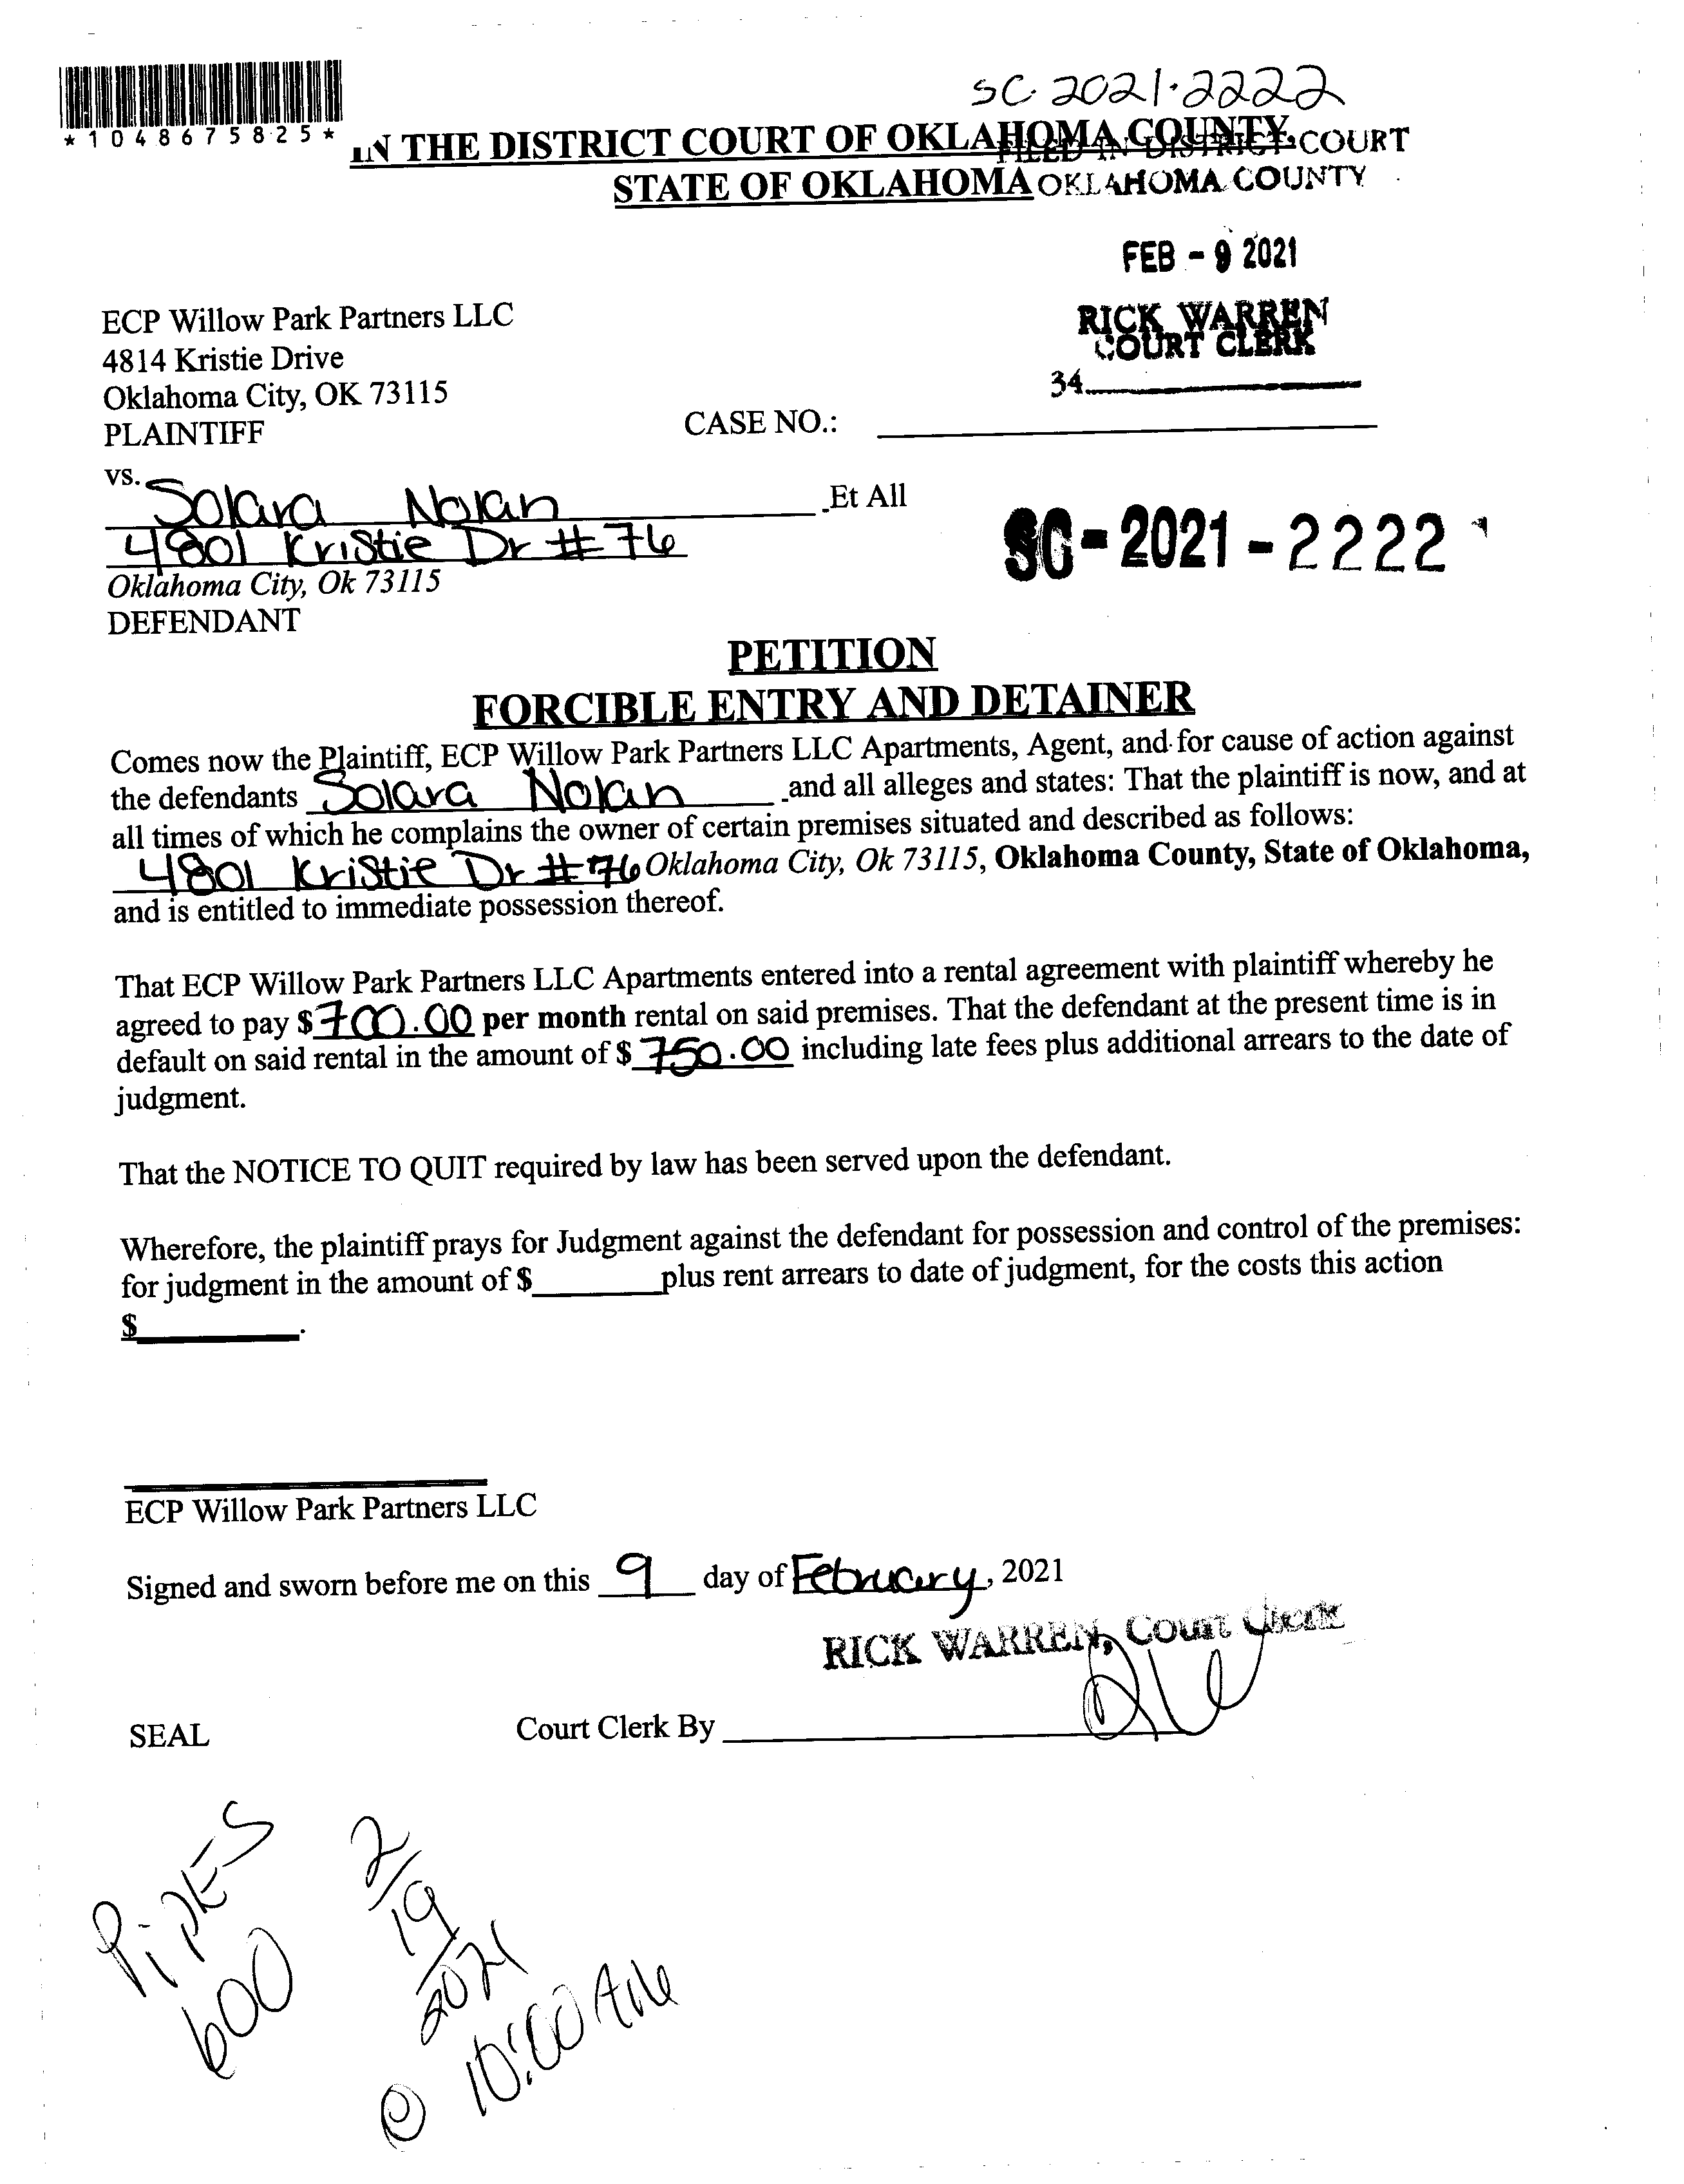 SC-2021-2222
*1048675825*
IN THE DISTRICT COURT OF OKLAHOMA COUNTY,
FILED IN DISTRICT COURT
STATE OF OKLAHOMA
OKLAHOMA COUNTY
FEB - 9 2021
RICK WARREN
COURT CLERK
34
ECP Willow Park Partners LLC
4814 Kristie Drive
Oklahoma City, OK 73115
PLAINTIFF
CASE NO.:
vs.
Solara Nolan Et All
4801 Kristie Dr #76
Oklahoma City, Ok 73115
DEFENDANT
SC-2021-2222
PETITION
FORCIBLE ENTRY AND DETAINER
Comes now the Plaintiff, ECP Willow Park Partners LLC Apartments, Agent, and for cause of action against
the defendants Solara Nolan and all alleges and states: That the plaintiff is now, and at
all times of which he complains the owner of certain premises situated and described as follows:
4801 Kristie Dr #76 Oklahoma City, Ok 73115, Oklahoma County, State of Oklahoma,
and is entitled to immediate possession thereof.
That ECP Willow Park Partners LLC Apartments entered into a rental agreement with plaintiff whereby he
agreed to pay $700.00 per month rental on said premises. That the defendant at the present time is in
default on said rental in the amount of $750.00 including late fees plus additional arrears to the date of
judgment.
That the NOTICE TO QUIT required by law has been served upon the defendant.
Wherefore, the plaintiff prays for Judgment against the defendant for possession and control of the premises:
for judgment in the amount of $ plus rent arrears to date of judgment, for the costs this action
$ .
ECP Willow Park Partners LLC
Signed and sworn before me on this 9 day of February, 2021
RICK WARREN, Court Clerk
SEAL
Court Clerk By
Pipes
600
2/19/2021
@ 10:00 AM